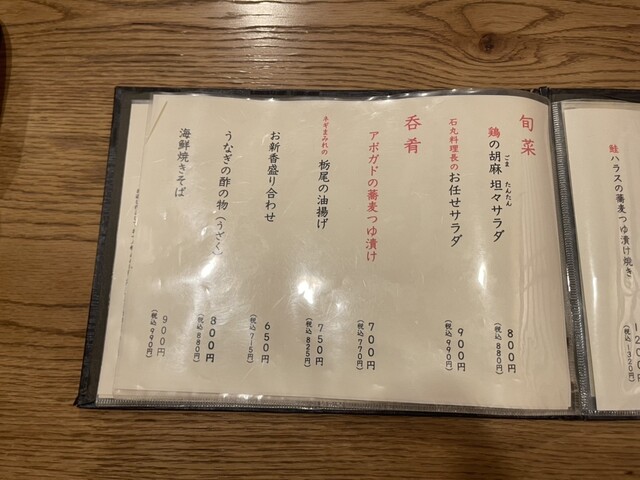 鮭ハラスの蕎麦つゆ漬け焼き
(税込1320円)
旬菜
鶏の胡麻坦々サラダ
ごま
たんたん
800円
(税込880円)
石丸料理長のお任せサラダ
900円
(税込990円)
呑肴
アボガドの蕎麦つゆ漬け
700円
(税込770円)
ネギまみれの栃尾の油揚げ
750円
(税込825円)
お新香盛り合わせ
650円
(税込715円)
うなぎの酢の物(うざく)
800円
(税込880円)
海鮮焼きそば
900円
(税込990円)